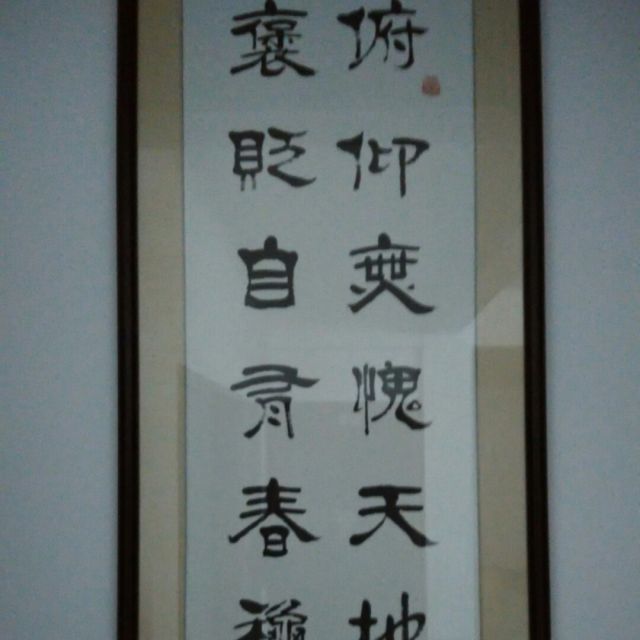 俯仰無愧天地
褒貶自有春穐